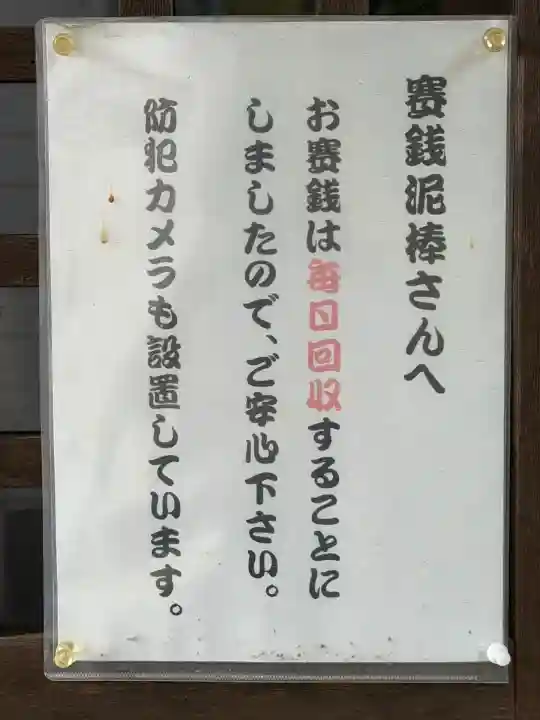 賽銭泥棒さんへ
お賽銭は毎日回収することに
しましたので、ご安心下さい。
防犯カメラも設置しています。